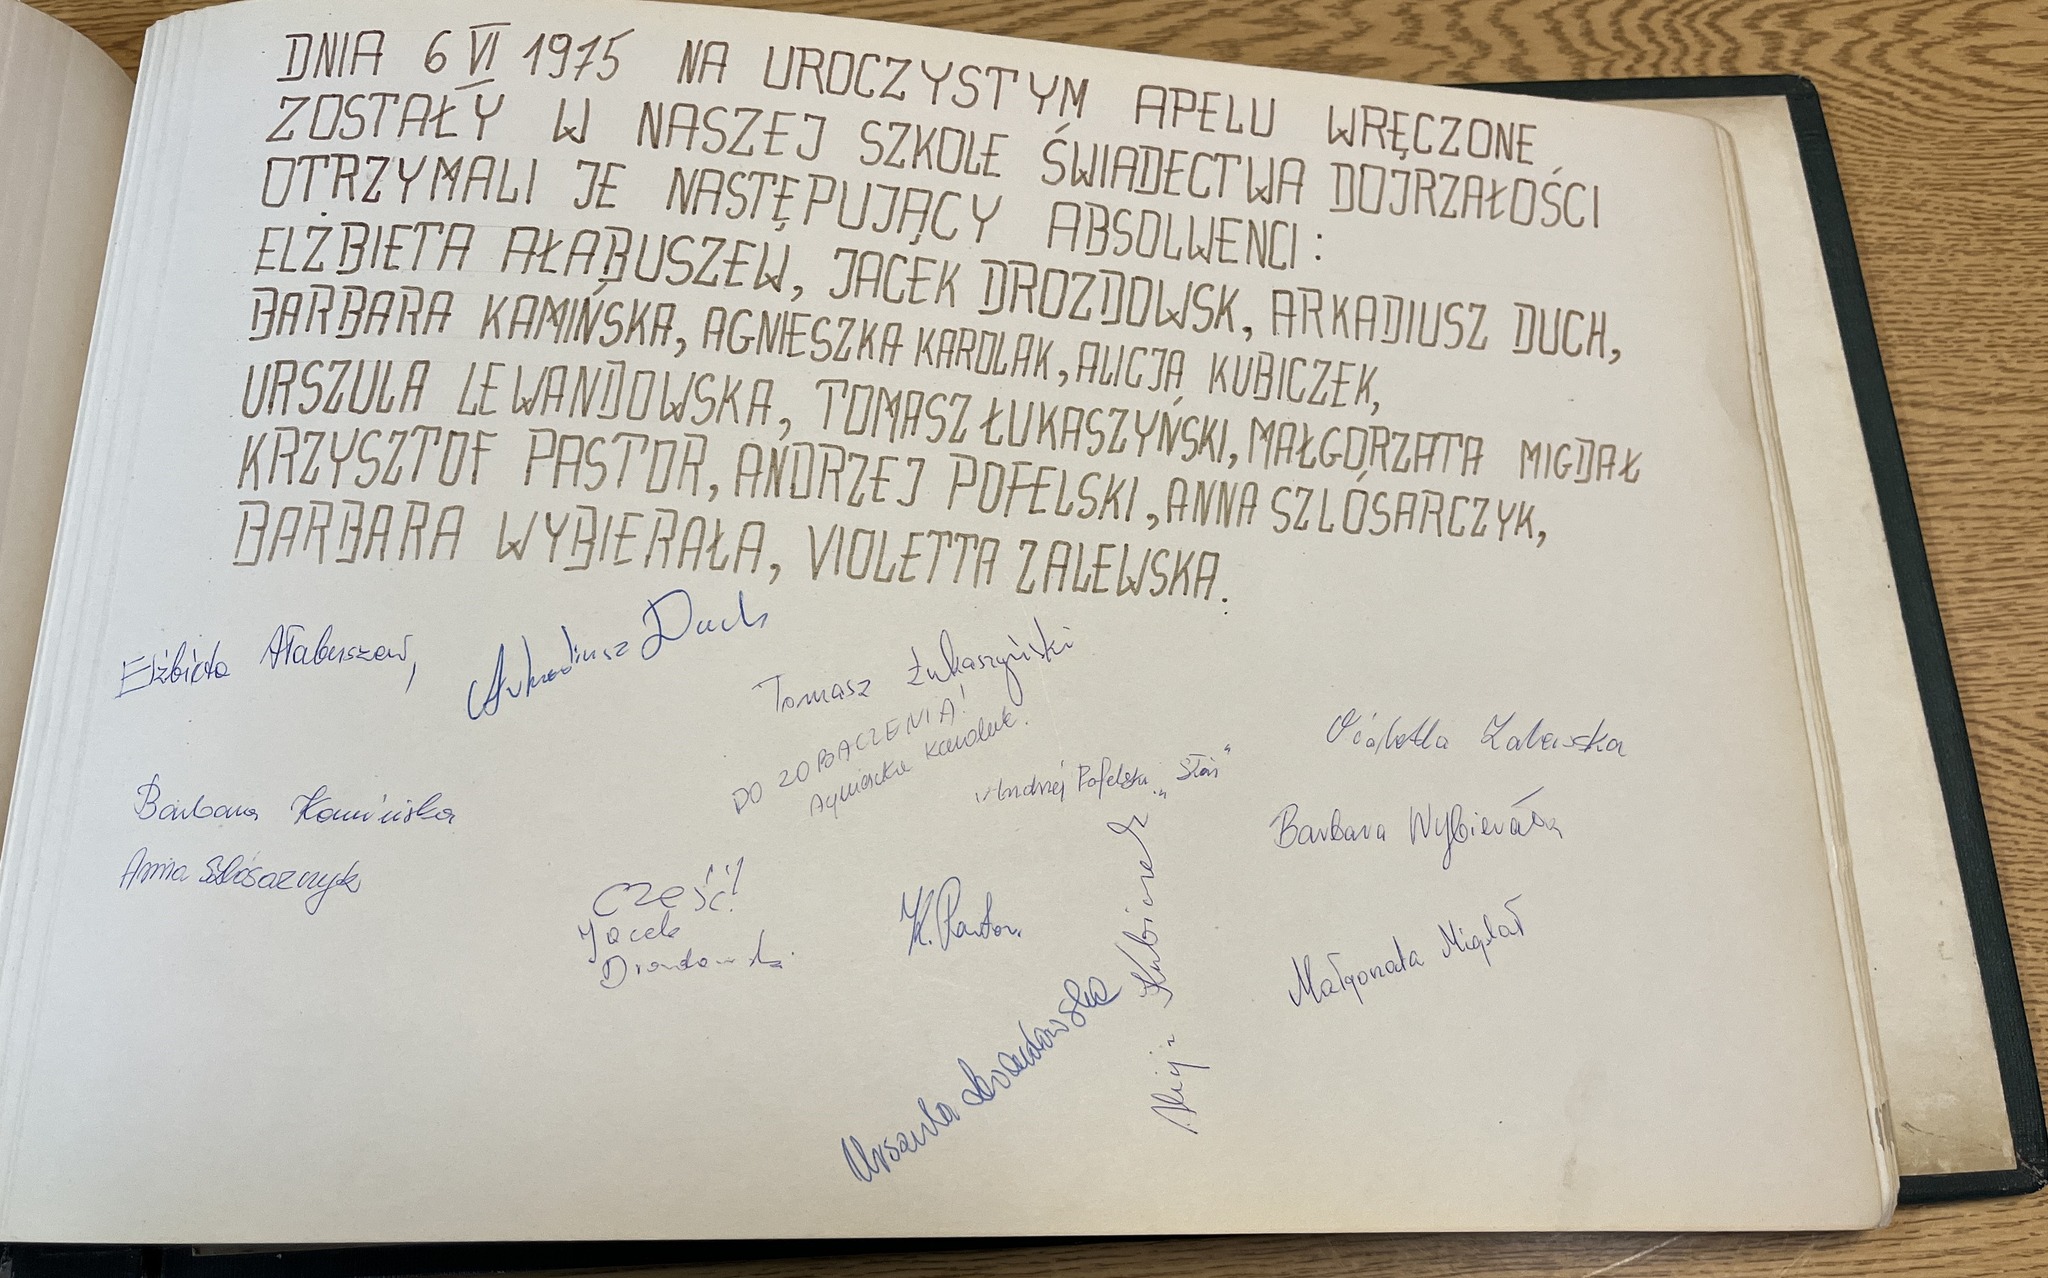 DNIA 6 VI 1975 NA UROCZYSTYM APELU WRĘCZONE
ZOSTAŁY W NASZEJ SZKOLE ŚWIADECTWA DOJRZAŁOŚCI
OTRZYMALI JE NASTĘPUJĄCY ABSOLWENCI:
ELŻBIETA AŁABUSZEW, JACEK DROZDOWSK, ARKADIUSZ DUCH,
BARBARA KAMIŃSKA, AGNIESZKA KAROLAK, ALICJA KUBICZEK,
URSZULA LEWANDOWSKA, TOMASZ ŁUKASZYŃSKI, MAŁGORZATA MIGDAŁ
KRZYSZTOF PASTOR, ANDRZEJ POFELSKI, ANNA SZLÓSARCZYK,
BARBARA WYBIERAŁA, VIOLETTA ZALEWSKA.
Elżbieta Ałabuszew,
Arkadiusz Duch
Tomasz Łukaszyński
DO ZOBACZENIA!
Agnieszka Karolak.
Andrzej Pofelski „Słoń"
Violetta Zalewska
Barbara Kamińska
Barbara Wybierała
Anna Szlósarczyk
CZEŚĆ!
Jacek
Drozdowski
K. Pastor.
Alicja Kubiczek
Małgorzata Migdał
Urszula Lewandowska